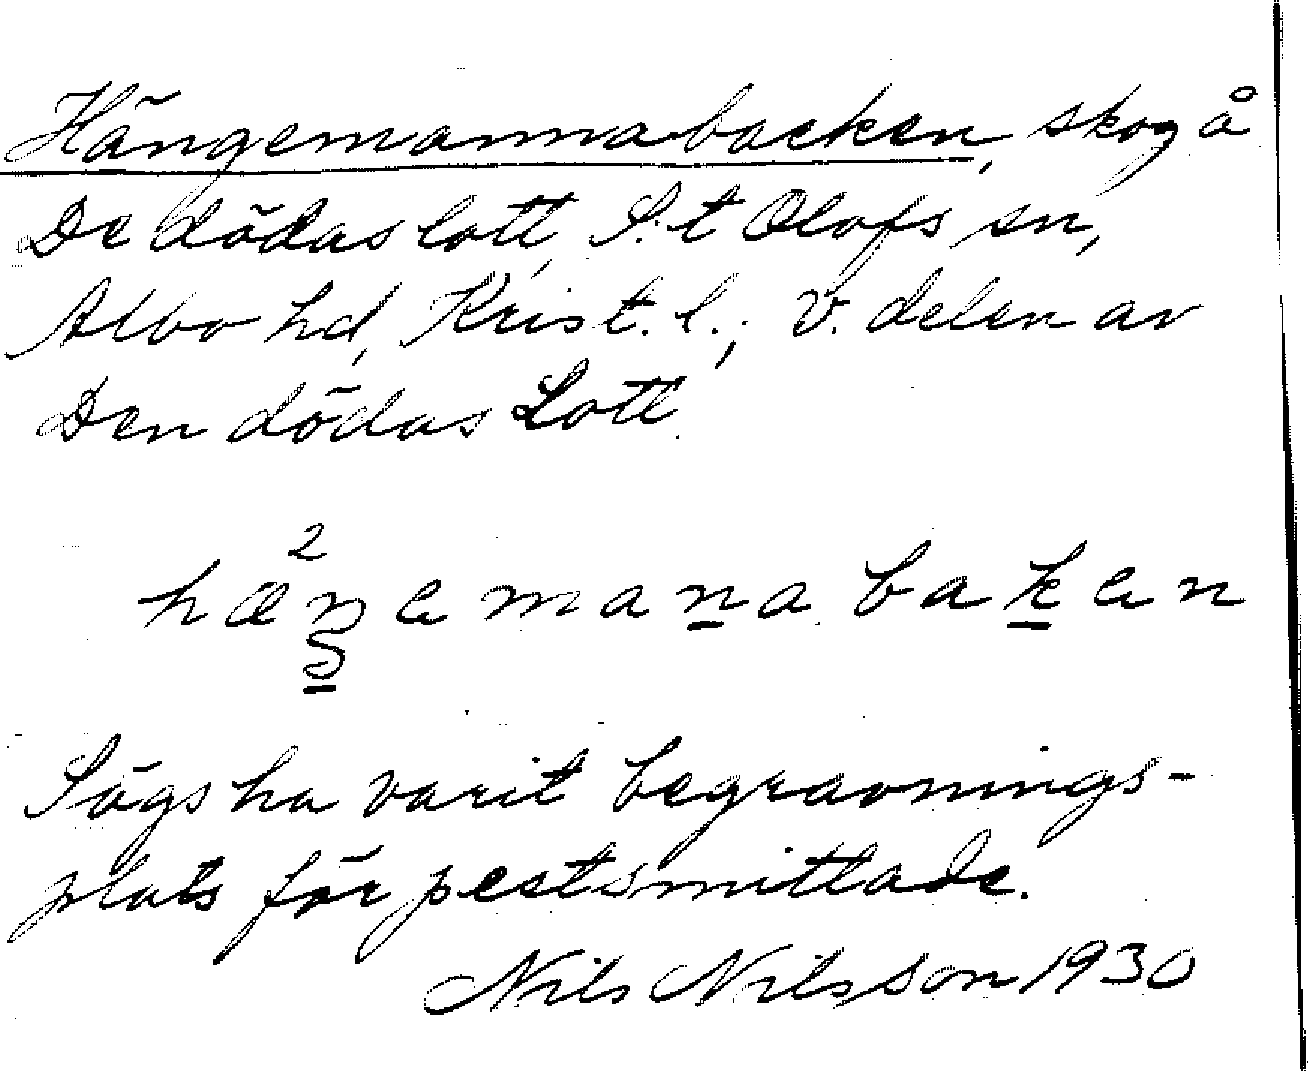 Hängemannabacken, skog å
De dödas lott, S:t Olofs sn,
Albo hd, Krist. l.; V. delen av
Den dödas Lott.
2
hæŋemana baken
Sägs ha varit begravnings-
plats för pestsmittade.
Nils Nilsson 1930